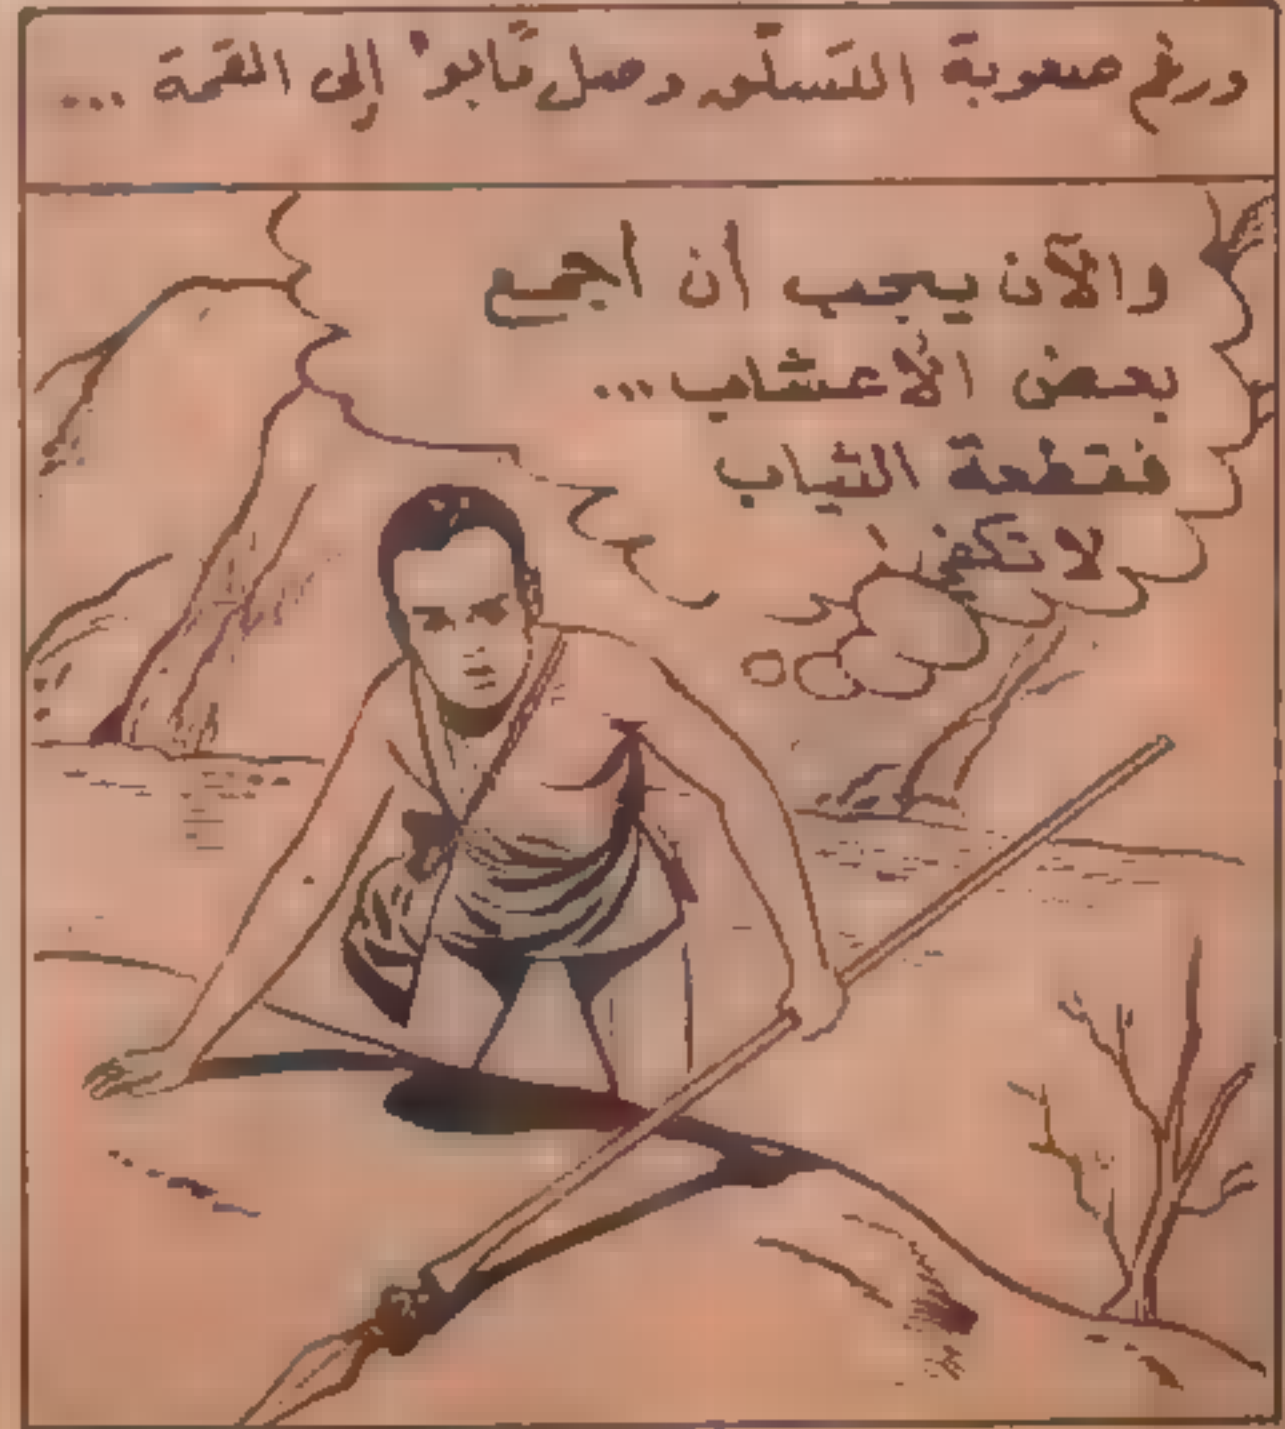 ورغم صعوبة التسلّق وصل تابو إلى القمة ...
والآن يجب أن أجمع
بعض الأعشاب ...
فقطعة الثياب
لا تكفي